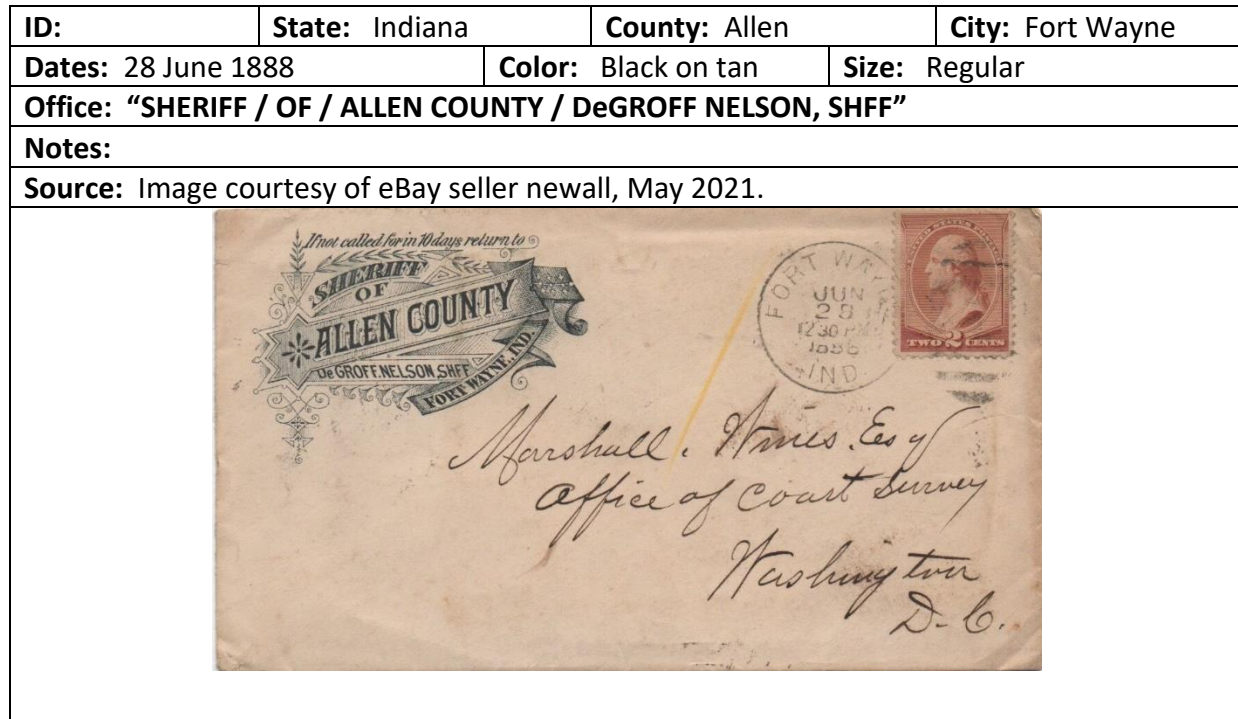 ID: State: Indiana County: Allen City: Fort Wayne
Dates: 28 June 1888 Color: Black on tan Size: Regular
Office: “SHERIFF / OF / ALLEN COUNTY / DeGROFF NELSON, SHFF”
Notes:
Source: Image courtesy of eBay seller newall, May 2021.
If not called for in 10 days return to
SHERIFF
OF
ALLEN COUNTY
De GROFF NELSON, SHFF
FORT WAYNE, IND.
FORT
JUN
12 30
IND.
UNITED STATES POSTAGE
TWO 2 CENTS
Marshall. Esq
Office of Coast Survey
Washington
D. C.